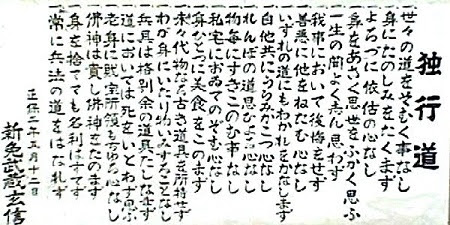 独行道
世々の道をそむく事なし
身にたのしみをたくまず
よろづに依怙の心なし
身をあさく思世をふかく思ふ
一生の間よく心思わず
我事において後悔をせず
善悪に他をねたむ心なし
いずれの道にもわかれをかなしまず
自他共にうらみかこつ心なし
れんぼの道思ひよる心なし
物毎にすきこのむ事なし
私宅においてのぞむ心なし
身ひとつに美食をこのまず
末々代物なる古き道具を所持せず
わが身にいたり物いみすることなし
兵具は格別余の道具たしなまず
道においては死をいとわず思ふ
老身に財宝所領もちゆる心なし
佛神は貴し佛神をたのまず
身を捨ても名利はすてず
常に兵法の道をはなれず
正保二年五月十二日
新免武蔵玄信